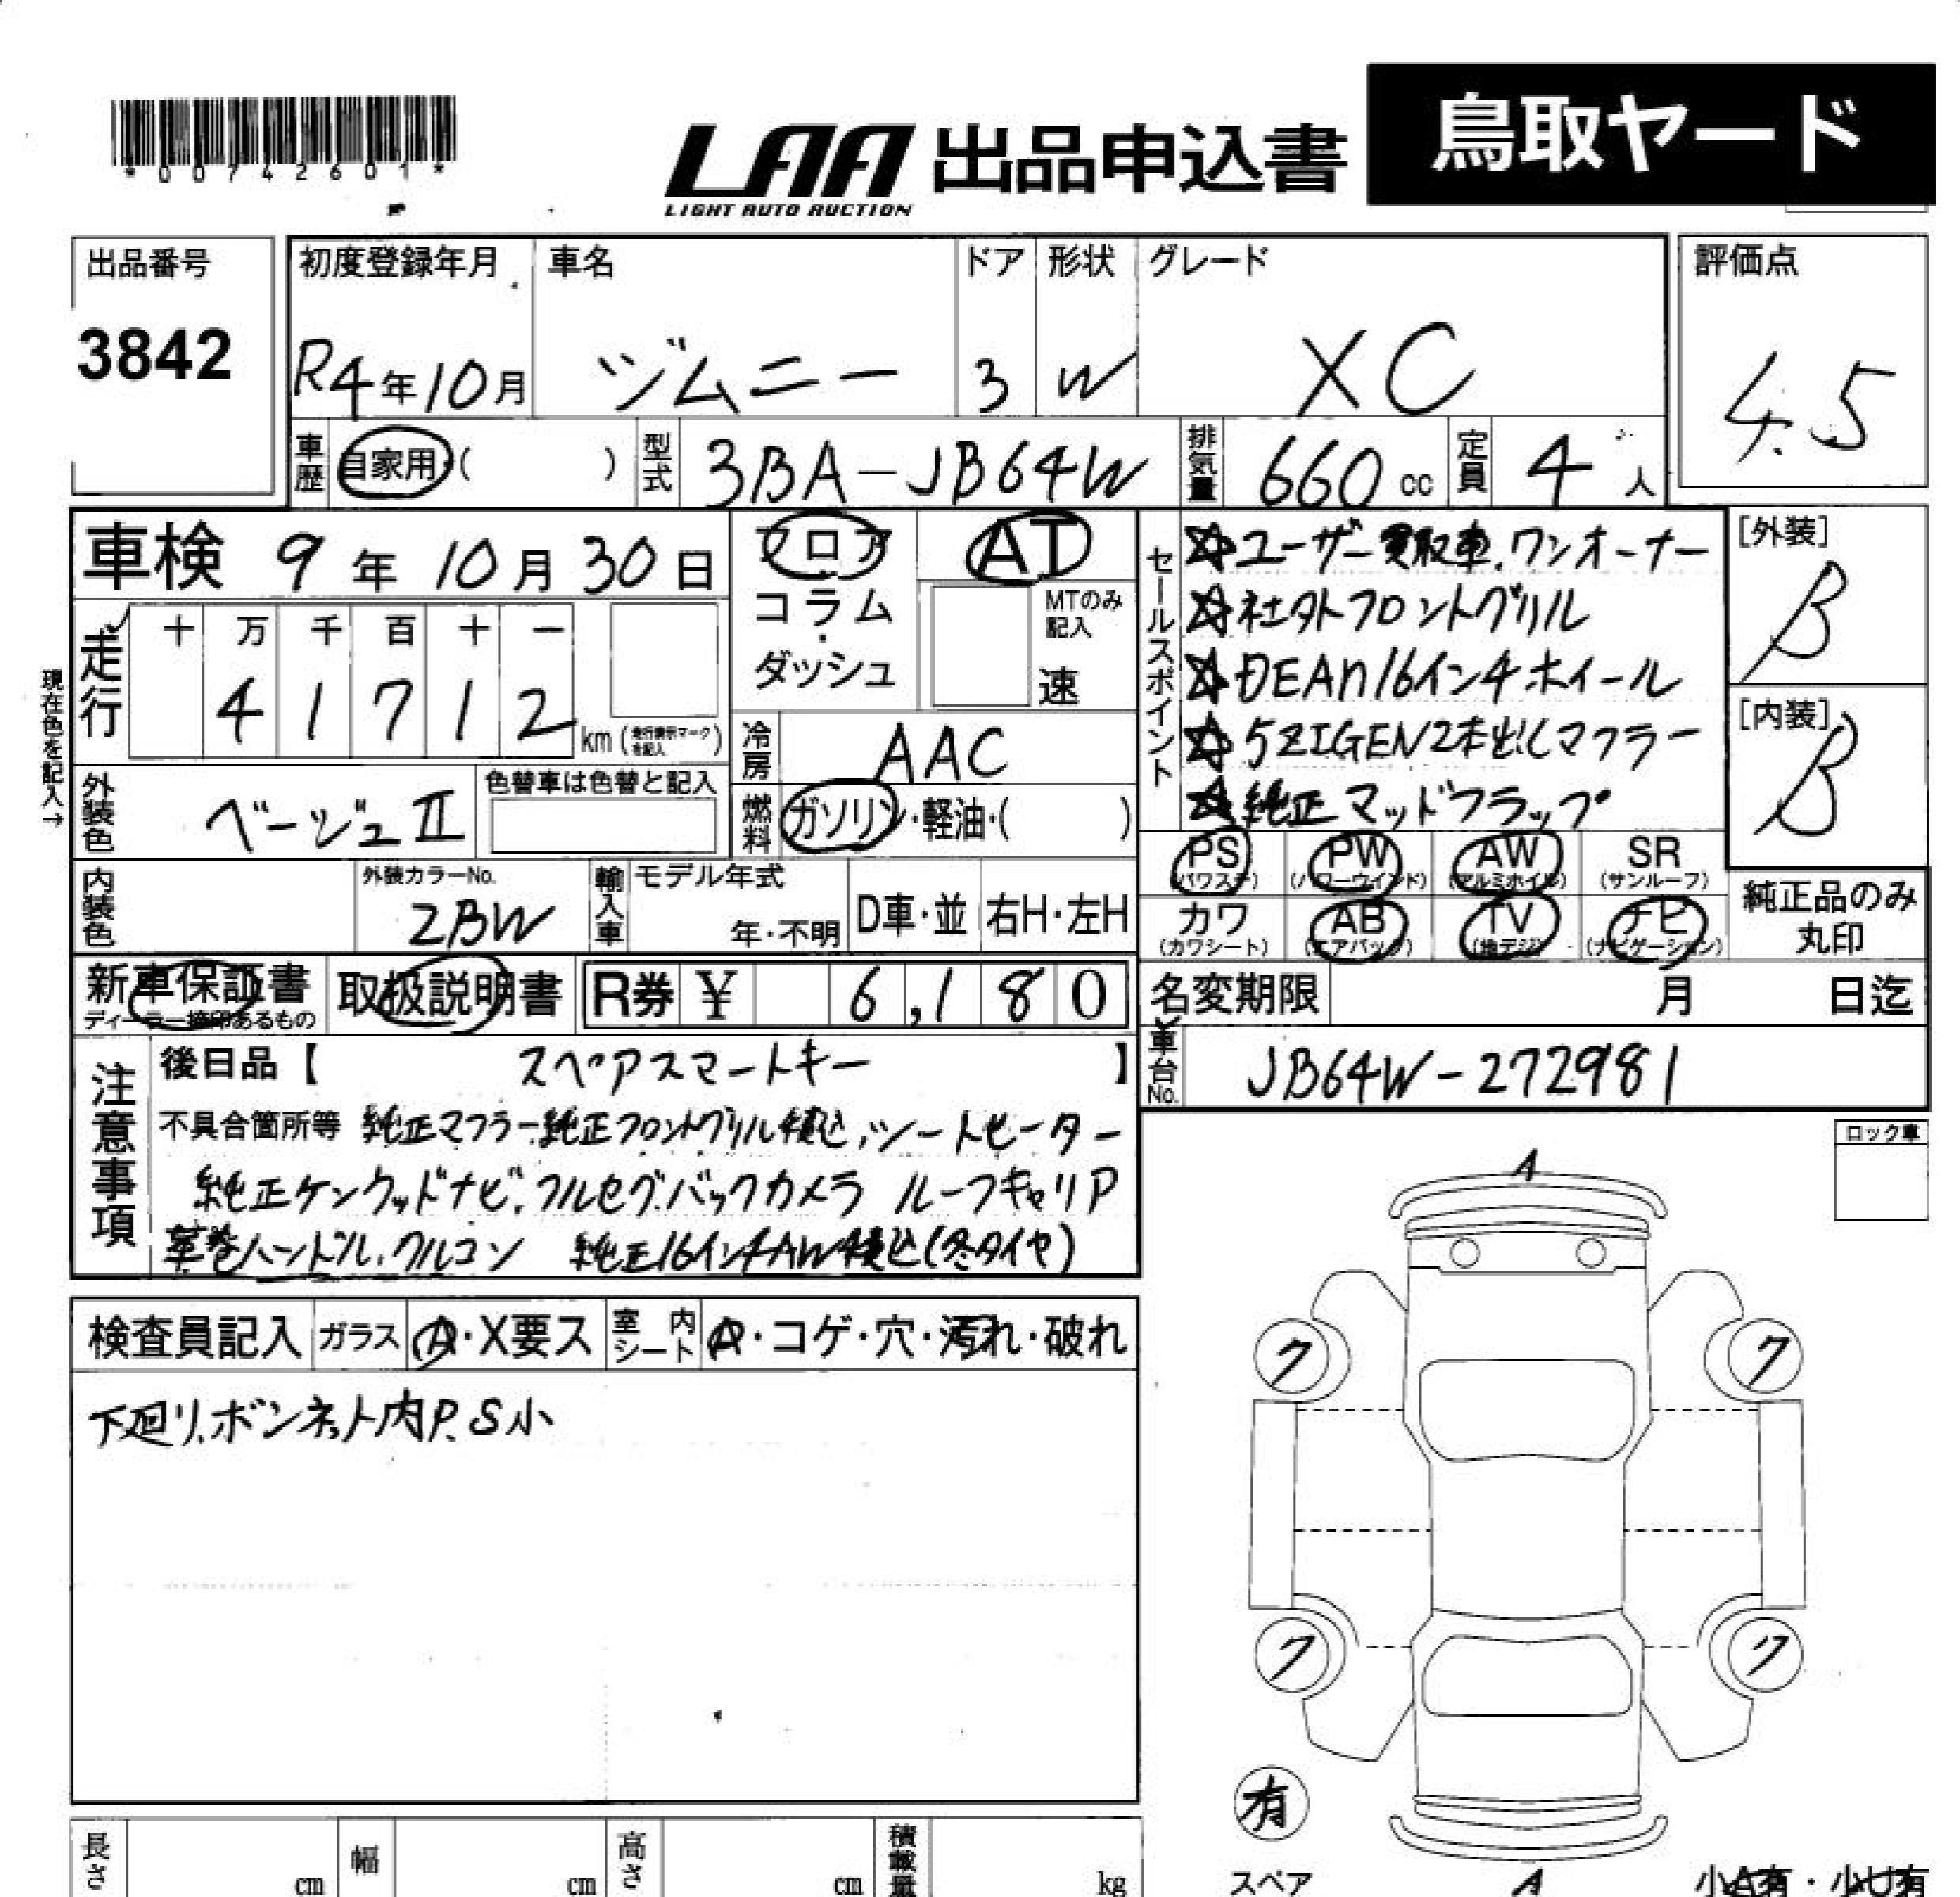 *00742601*
LAA 出品申込書 鳥取ヤード
LIGHT AUTO AUCTION
出品番号 初度登録年月 車名 ドア 形状 グレード 評価点
3842 R4年10月 ジムニー 3 W XC 4.5
車歴 自家用・( ) 型式 3BA-JB64W 排気量 660 cc 定員 4 人
車検 9 年 10 月 30 日
フロア・コラム・ダッシュ
AT
MTのみ記入
速
現在色を記入→
走行 十 万 千 百 十 一
4 1 7 1 2 km (走行表示マークを記入)
冷房 AAC
外装色 ベージュII 色替車は色替と記入
燃料 ガソリン・軽油・( )
セールスポイント
☆ユーザー買取車.ワンオーナー
☆社外フロントグリル
☆DEAN16インチホイール
☆5ZIGEN2本出しマフラー
☆純正マッドフラップ
[外装] B
[内装] B
内装色 外装カラーNo. 2BW 輸入車 モデル年式 年・不明 D車・並 右H・左H
PS (パワステ) PW (パワーウインド) AW (アルミホイル) SR (サンルーフ)
カワ (カワシート) AB (エアバッグ) TV (地デジ) ナビ (ナビゲーション)
純正品のみ丸印
新車保証書 取扱説明書 R券 ¥ 6,180
ディーラー捺印あるもの
名変期限 月 日迄
車台No. JB64W-272981
注意事項
後日品【 スペアスマートキー 】
不具合箇所等 純正マフラー.純正フロントグリル積込,シートヒーター
純正ケンウッドナビ.フルセグ.バックカメラ ルーフキャリア
革巻ハンドル.クルコン 純正16インチAW積込(冬タイヤ)
ロック車
検査員記入 ガラス A・X要ス 室内シート A・コゲ・穴・汚れ・破れ
下廻り.ボンネット内P.S小
A
ク ク
ク ク
有
スペア
A
小A有・小U有
長さ cm 幅 cm 高さ cm 積載量 kg